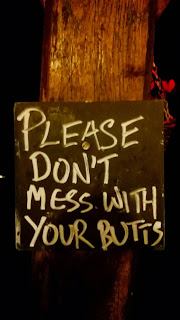 PLEASE
DON'T
MESS WITH
YOUR BUTTS